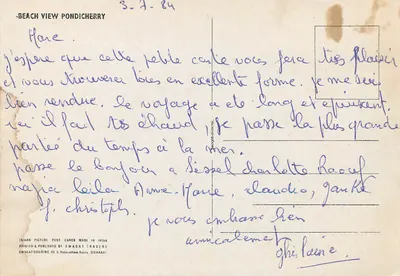 3-7-84
BEACH VIEW PONDICHERRY
Marc,
j'espère que cette petite carte vous fera très plaisir
et vous trouvera tous en excellente forme. je me suis
bien rendue. le voyage a été long et épuisant.
ici il fait très chaud, je passe la plus grande
partie du temps à la mer.
passe le bonjour à Sessel charlotte Raouf
najia leila Anne-Marie, claudio,
christoph.
je vous embrasse bien
amicalement
ghislaine.
INDAR PICTURE POST CARDS MADE IN INDIA